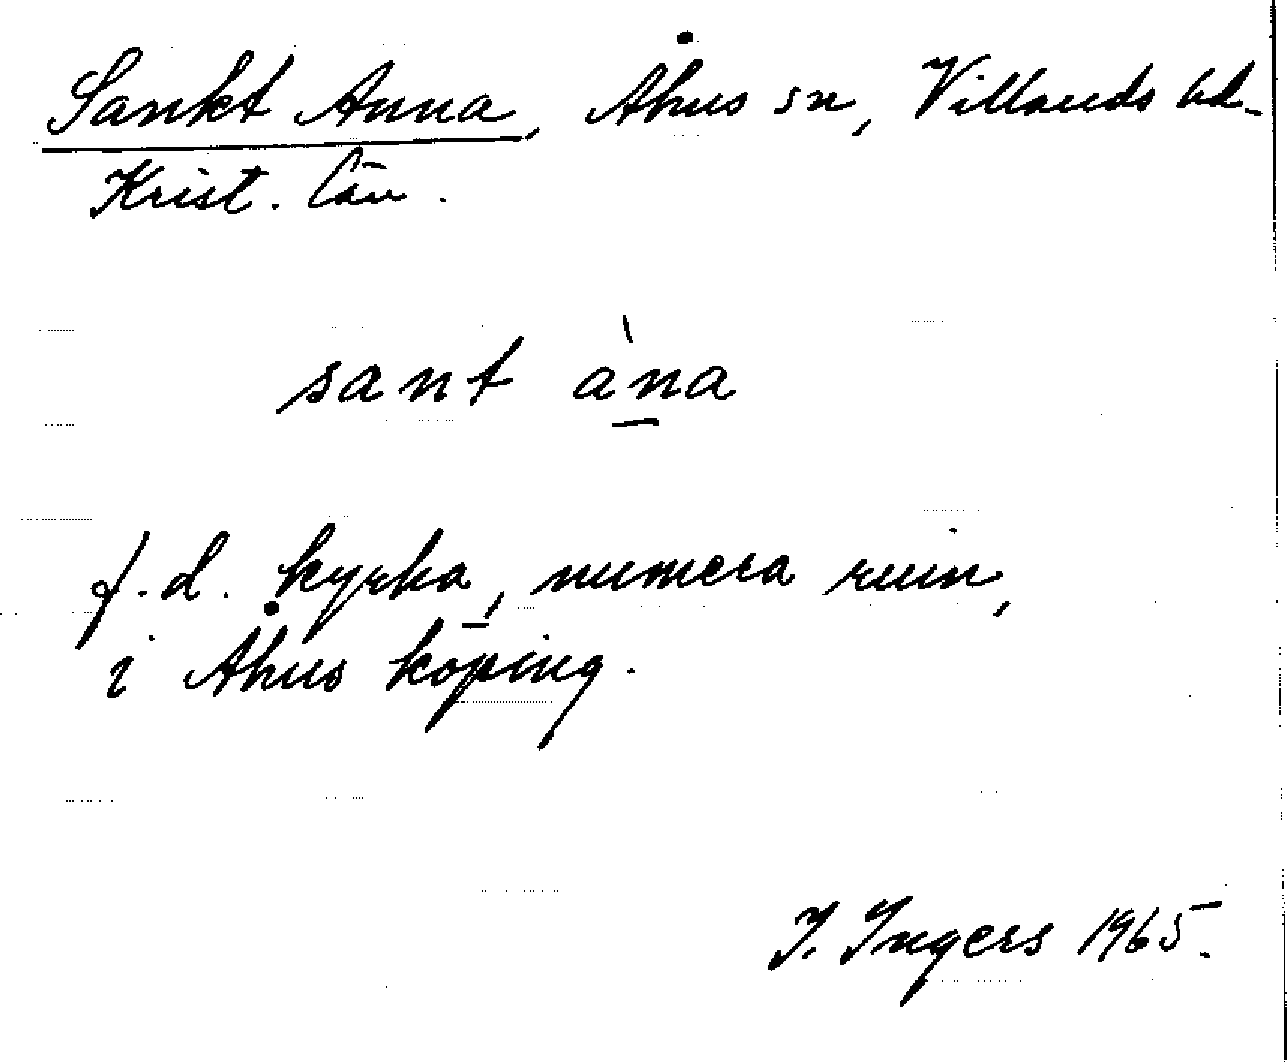 Sankt Anna, Åhus sn, Villands hd.
Krist. län.
sant àn̲a
f.d. kyrka, numera ruin,
i Åhus köping.
I. Ingers 1965.